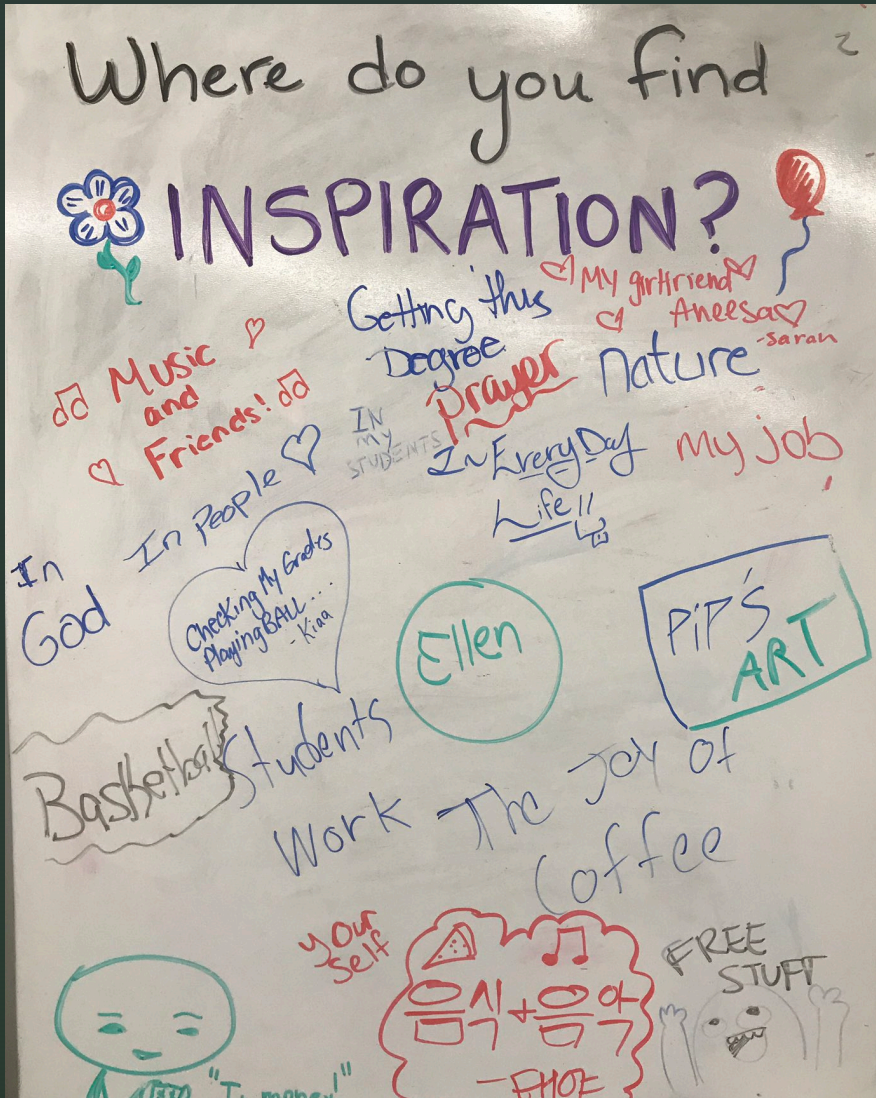 Where do you find
INSPIRATION?
My girlfriend
Aneesa
-Sarah
Getting this
Degree
Music
and
Friends!
Prayer
nature
IN
my
STUDENTS
In EveryDay
Life!!
my job
In People
In
God
Checking My Grades
Playing BALL....
- Kiaa
Ellen
PiP'S
ART
Basketball
Students
Work
The Joy of
Coffee
your
self
음식+음악
FREE
STUFF